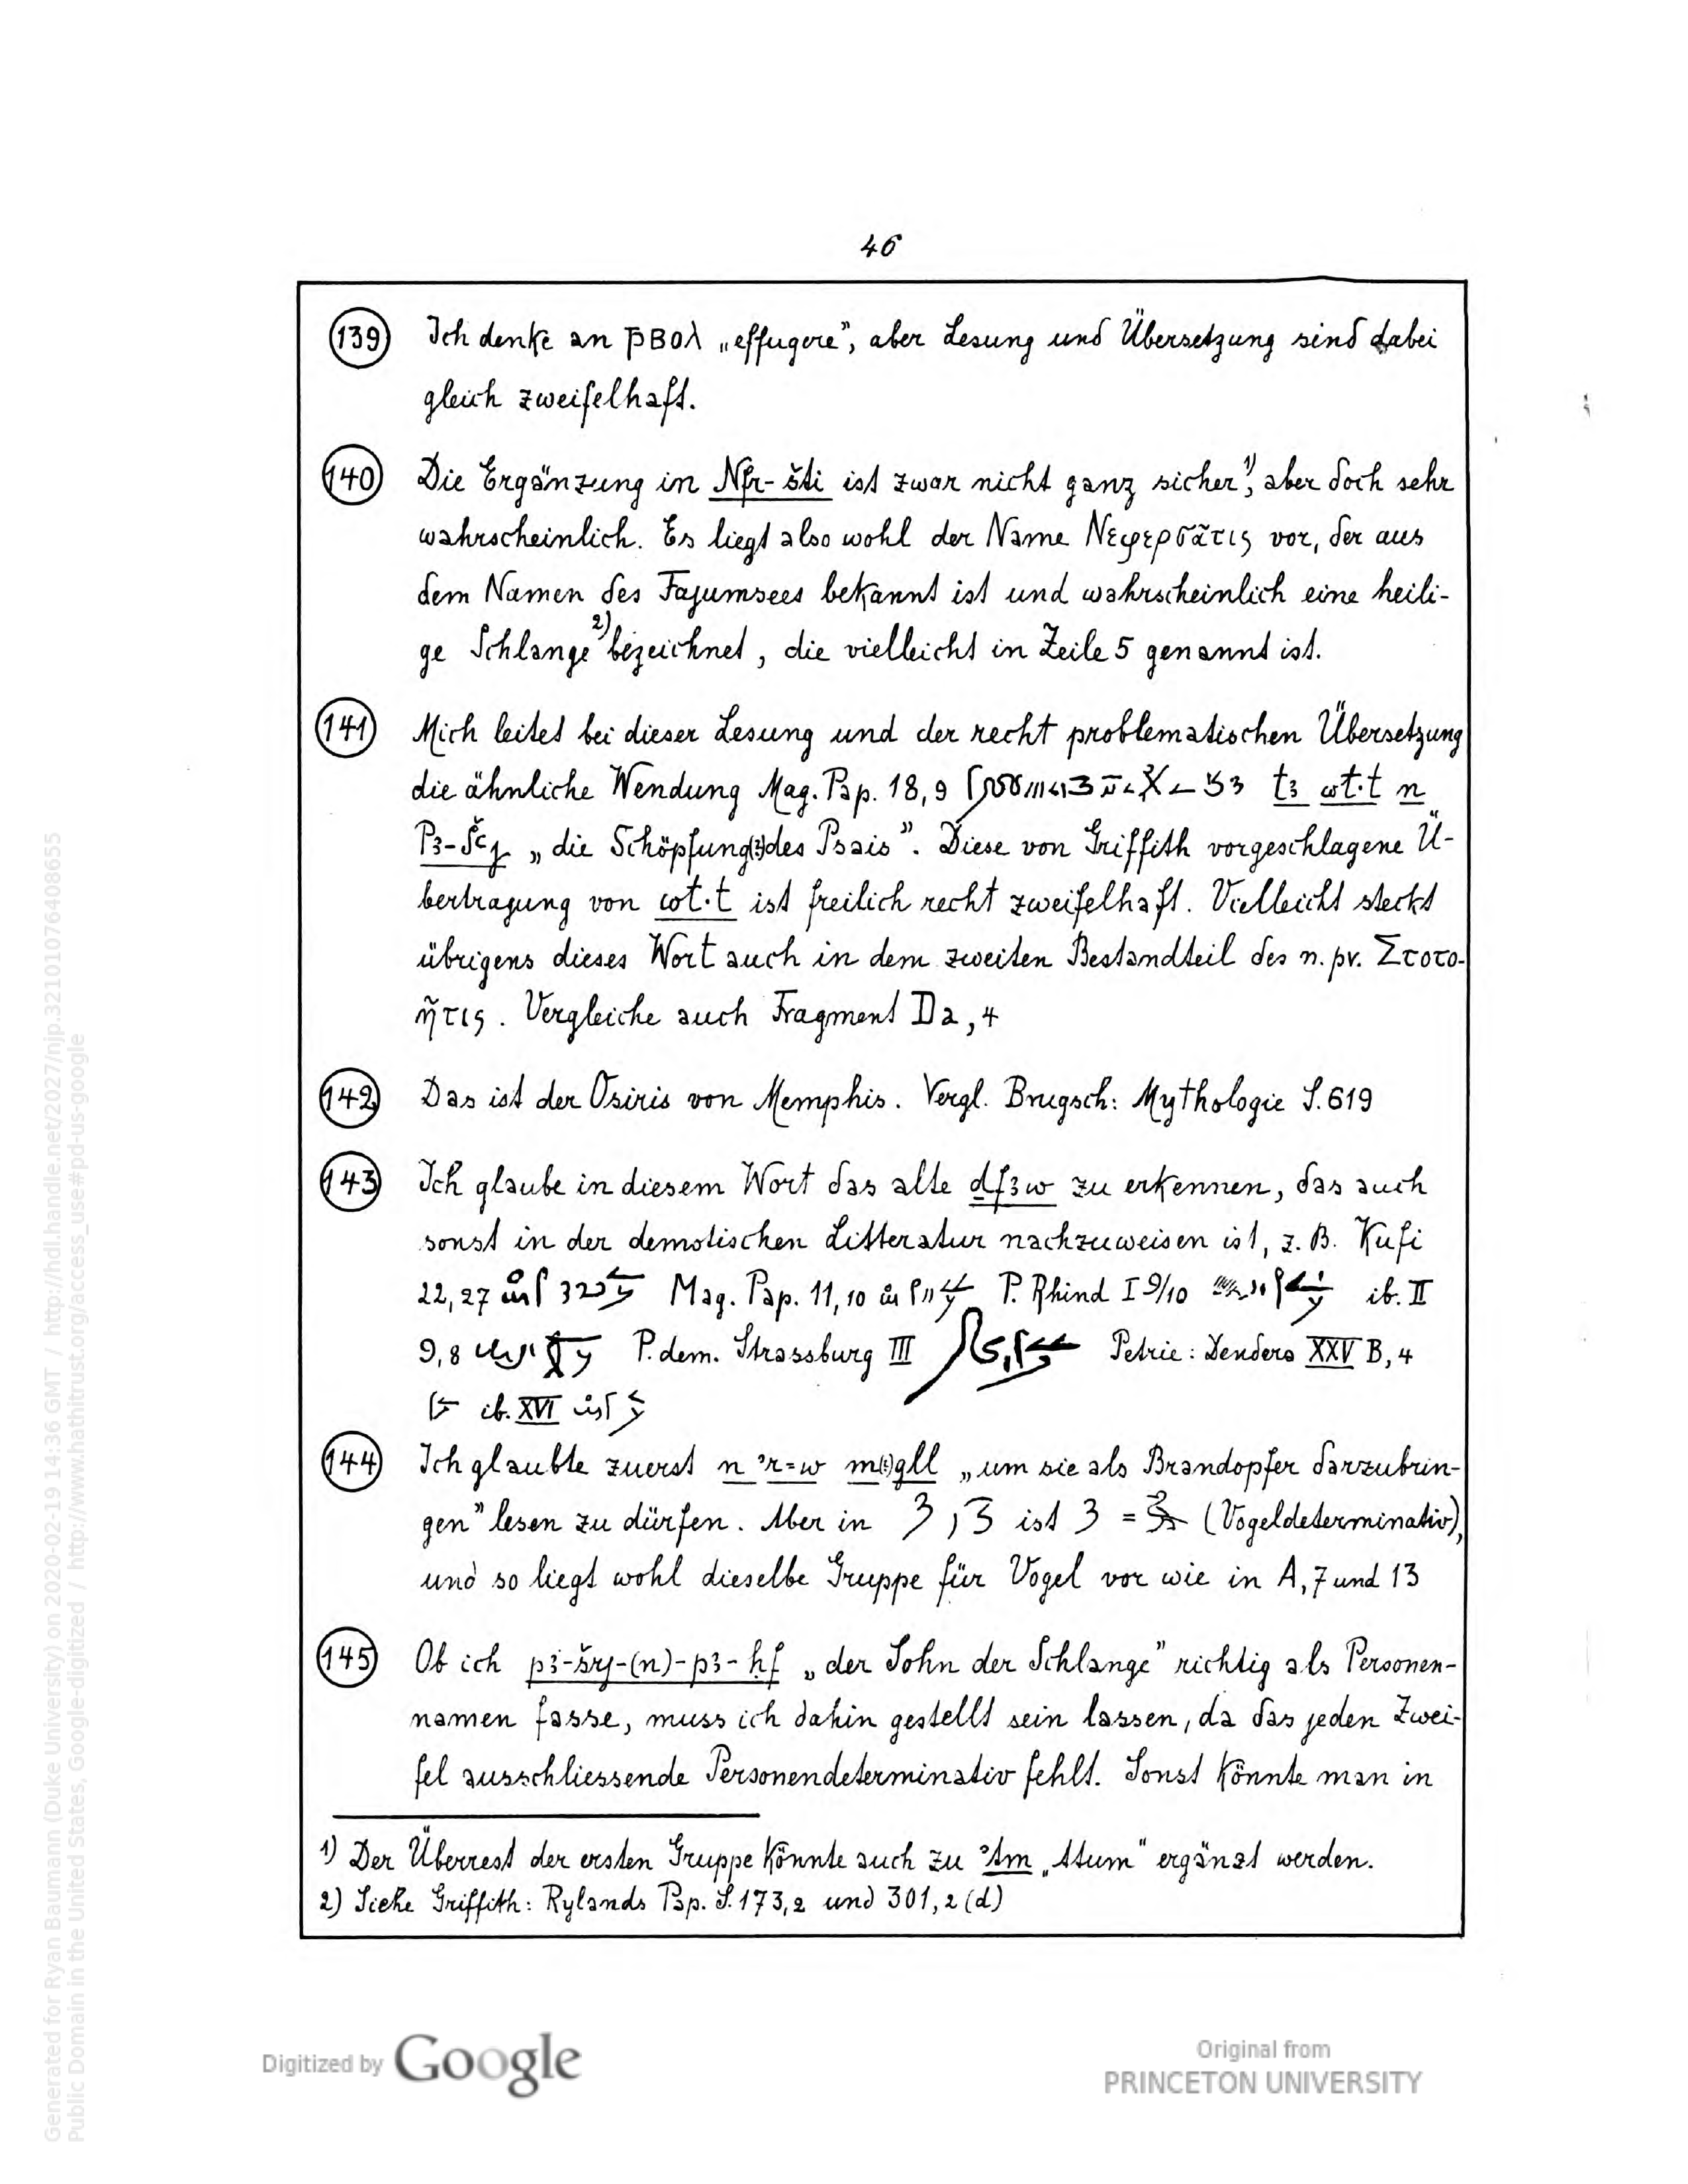 46
139 Ich denke an ⲣ̄ⲃⲟⲗ „effugere”, aber Lesung und Übersetzung sind dabei
gleich zweifelhaft.
140 Die Ergänzung in Nfr-šti ist zwar nicht ganz sicher¹⁾, aber doch sehr
wahrscheinlich. Es liegt also wohl der Name Νεφερσᾶτις vor, der aus
dem Namen des Fajumsees bekannt ist und wahrscheinlich eine heili-
ge Schlange²⁾ bezeichnet, die vielleicht in Zeile 5 genannt ist.
141 Mich leitet bei dieser Lesung und der recht problematischen Übersetzung
die ähnliche Wendung Mag. Pap. 18,9 tꜣ wt·t n
Pꜣ-Šꜥj „die Schöpfung(?) des Psais”. Diese von Griffith vorgeschlagene Ü-
bertragung von wt·t ist freilich recht zweifelhaft. Vielleicht steckt
übrigens dieses Wort auch in dem zweiten Bestandteil des n. pr. Στοτο-
ῆτις. Vergleiche auch Fragment Da, 4
142 Das ist der Osiris von Memphis. Vergl. Brugsch: Mythologie S. 619
143 Ich glaube in diesem Wort das alte ḏfꜣw zu erkennen, das auch
sonst in der demotischen Litteratur nachzuweisen ist, z. B. Kufi
22,27 Mag. Pap. 11,10 P. Rhind I 9/10 ib. II
9,8 P. dem. Strassburg III Petrie: Dendera XXV B, 4
ib. XVI
144 Ich glaubte zuerst n ꜥr=w m(?)gll „um sie als Brandopfer darzubrin-
gen” lesen zu dürfen. Aber in ist = (Vogeldeterminativ),
und so liegt wohl dieselbe Gruppe für Vogel vor wie in A, 7 und 13
145 Ob ich pꜣ-šrj-(n)-pꜣ-ḥf „der Sohn der Schlange” richtig als Personen-
namen fasse, muss ich dahin gestellt sein lassen, da das jeden Zwei-
fel ausschliessende Personendeterminativ fehlt. Sonst könnte man in
1) Der Überrest der ersten Gruppe könnte auch zu ꜣtm „Atum” ergänzt werden.
2) Siehe Griffith: Rylands Pap. S. 173,2 und 301,2 (d)
Digitized by Google
Original from
PRINCETON UNIVERSITY
Generated for Ryan Baumann (Duke University) on 2020-02-19 14:36 GMT / http://hdl.handle.net/2027/njp.32101076408655
Public Domain in the United States, Google-digitized / http://www.hathitrust.org/access_use#pd-us-google